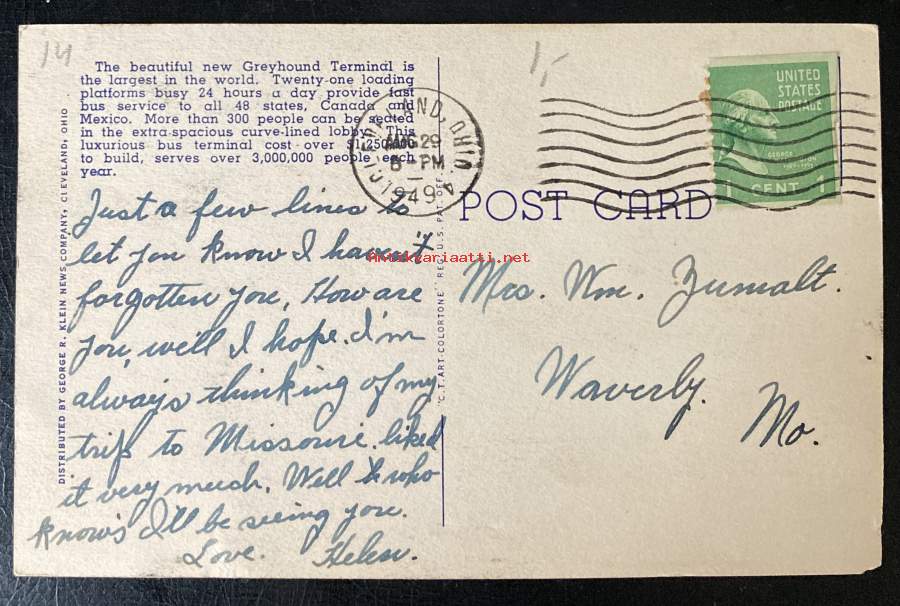 14
1,-
The beautiful new Greyhound Terminal is
the largest in the world. Twenty-one loading
platforms busy 24 hours a day provide fast
bus service to all 48 states, Canada and
Mexico. More than 300 people can be seated
in the extra-spacious curve-lined lobby. This
luxurious bus terminal cost over $1,250,000
to build, serves over 3,000,000 people each
year.
DISTRIBUTED BY GEORGE R. KLEIN NEWS COMPANY, CLEVELAND, OHIO
CLEVELAND, OHIO
AUG 29
6-PM
1949
UNITED
STATES
POSTAGE
GEORGE
1 CENT 1
POST CARD
"C.T. ART-COLORTONE" REG. U.S. PAT. OFF.
Antikvariaatti.net
Just a few lines to
let you know I haven't
forgotten you, How are
you, well I hope. I'm
always thinking of my
trip to Missouri. liked
it very much. Well who
know's I'll be seeing you.
Love. Helen.
Mrs. Wm. Zumalt.
Waverly.
Mo.